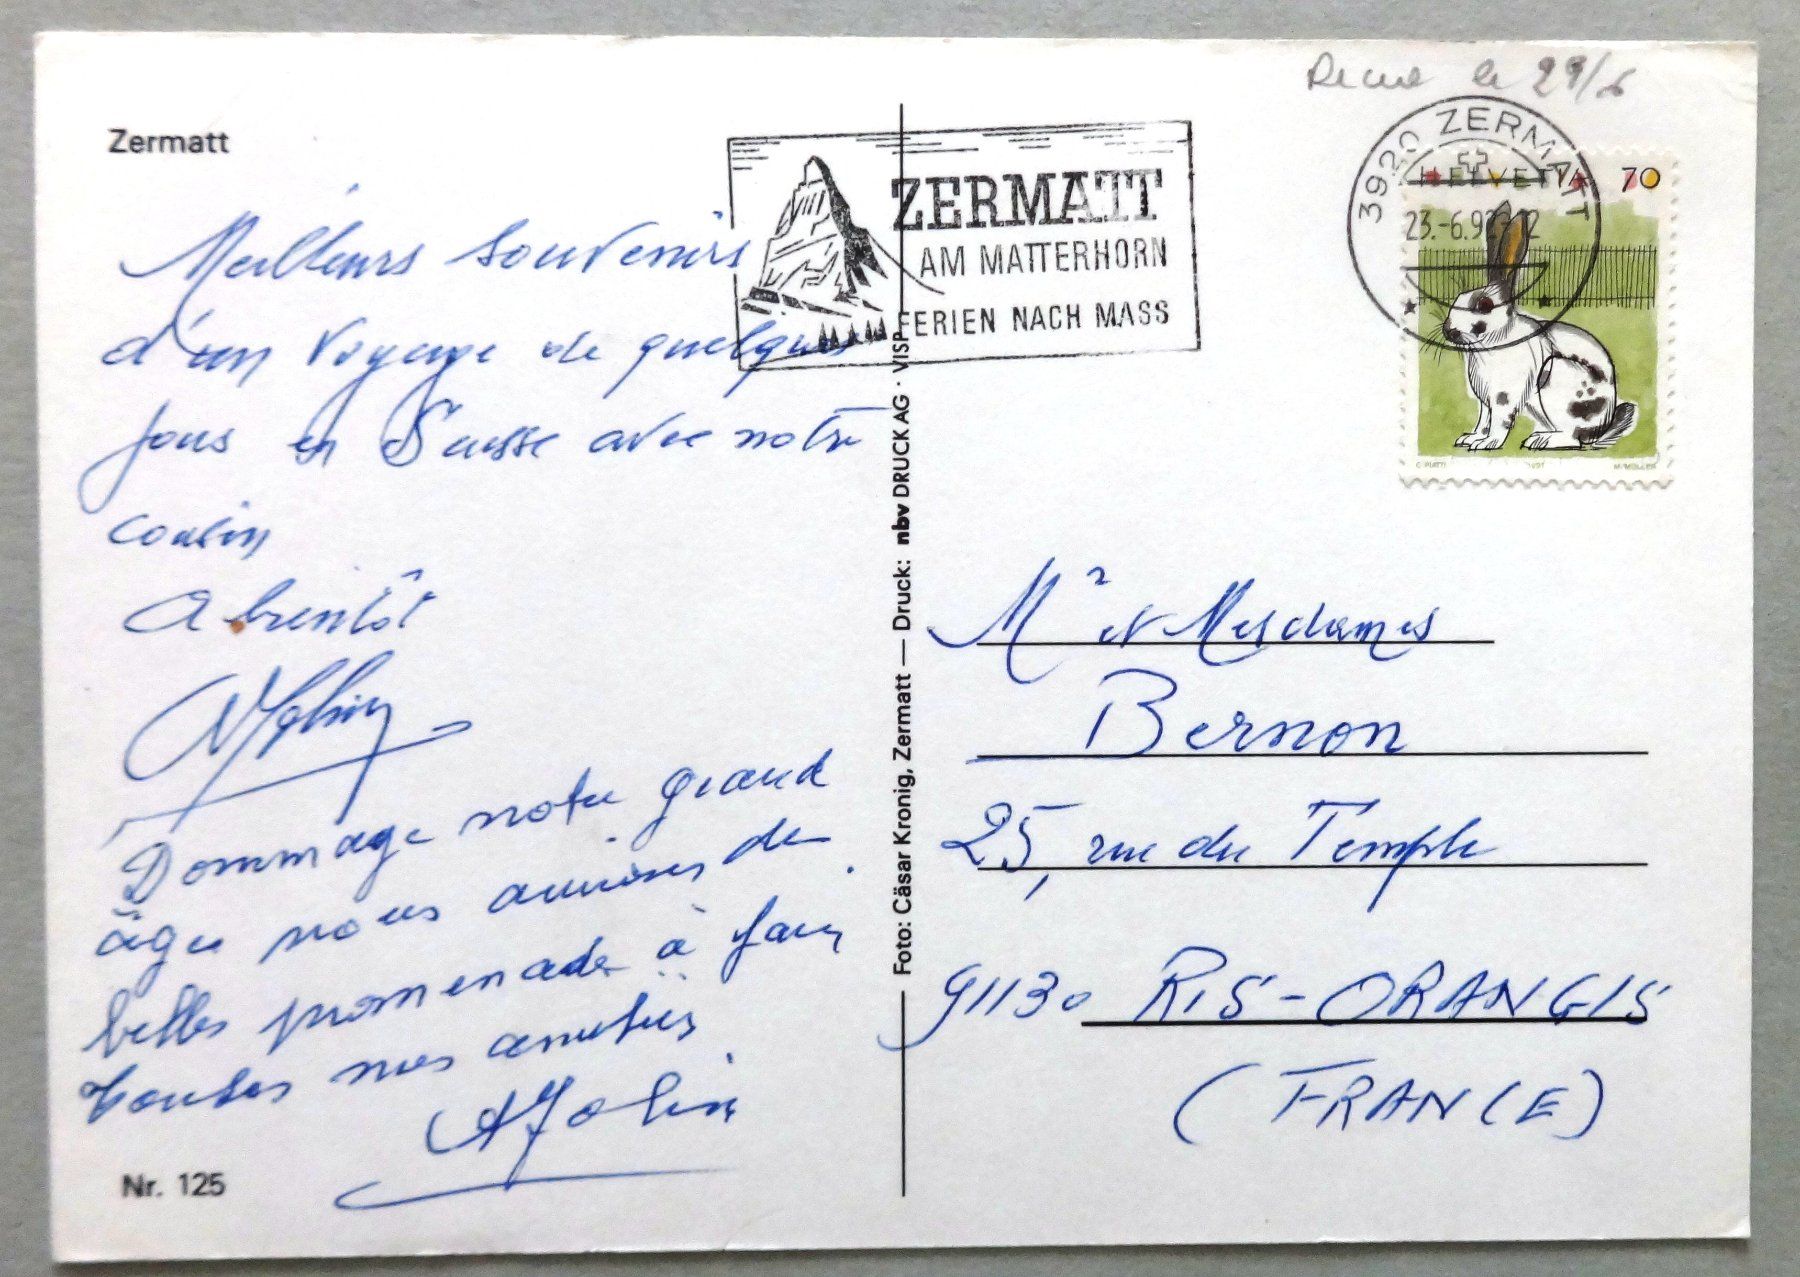 Recue le 29/6
Zermatt
ZERMATT
AM MATTERHORN
FERIEN NACH MASS
3920 ZERMATT
23.-6.92-12
HELVETIA 70
C. PIATTI 1991 M. MÜLLER
Meilleurs souvenirs
d'un voyage de quelques
jours en Suisse avec notre
cousin
A bientôt
Dommage notre grand
âge nous aurions de
belles promenades à faire
toutes nos amitiés
Nr. 125
Foto: Cäsar Kronig, Zermatt — Druck: nbv DRUCK AG · VISP
Mr et Mesdames
Bernon
25, rue du Temple
91130 RIS-ORANGIS
(FRANCE)